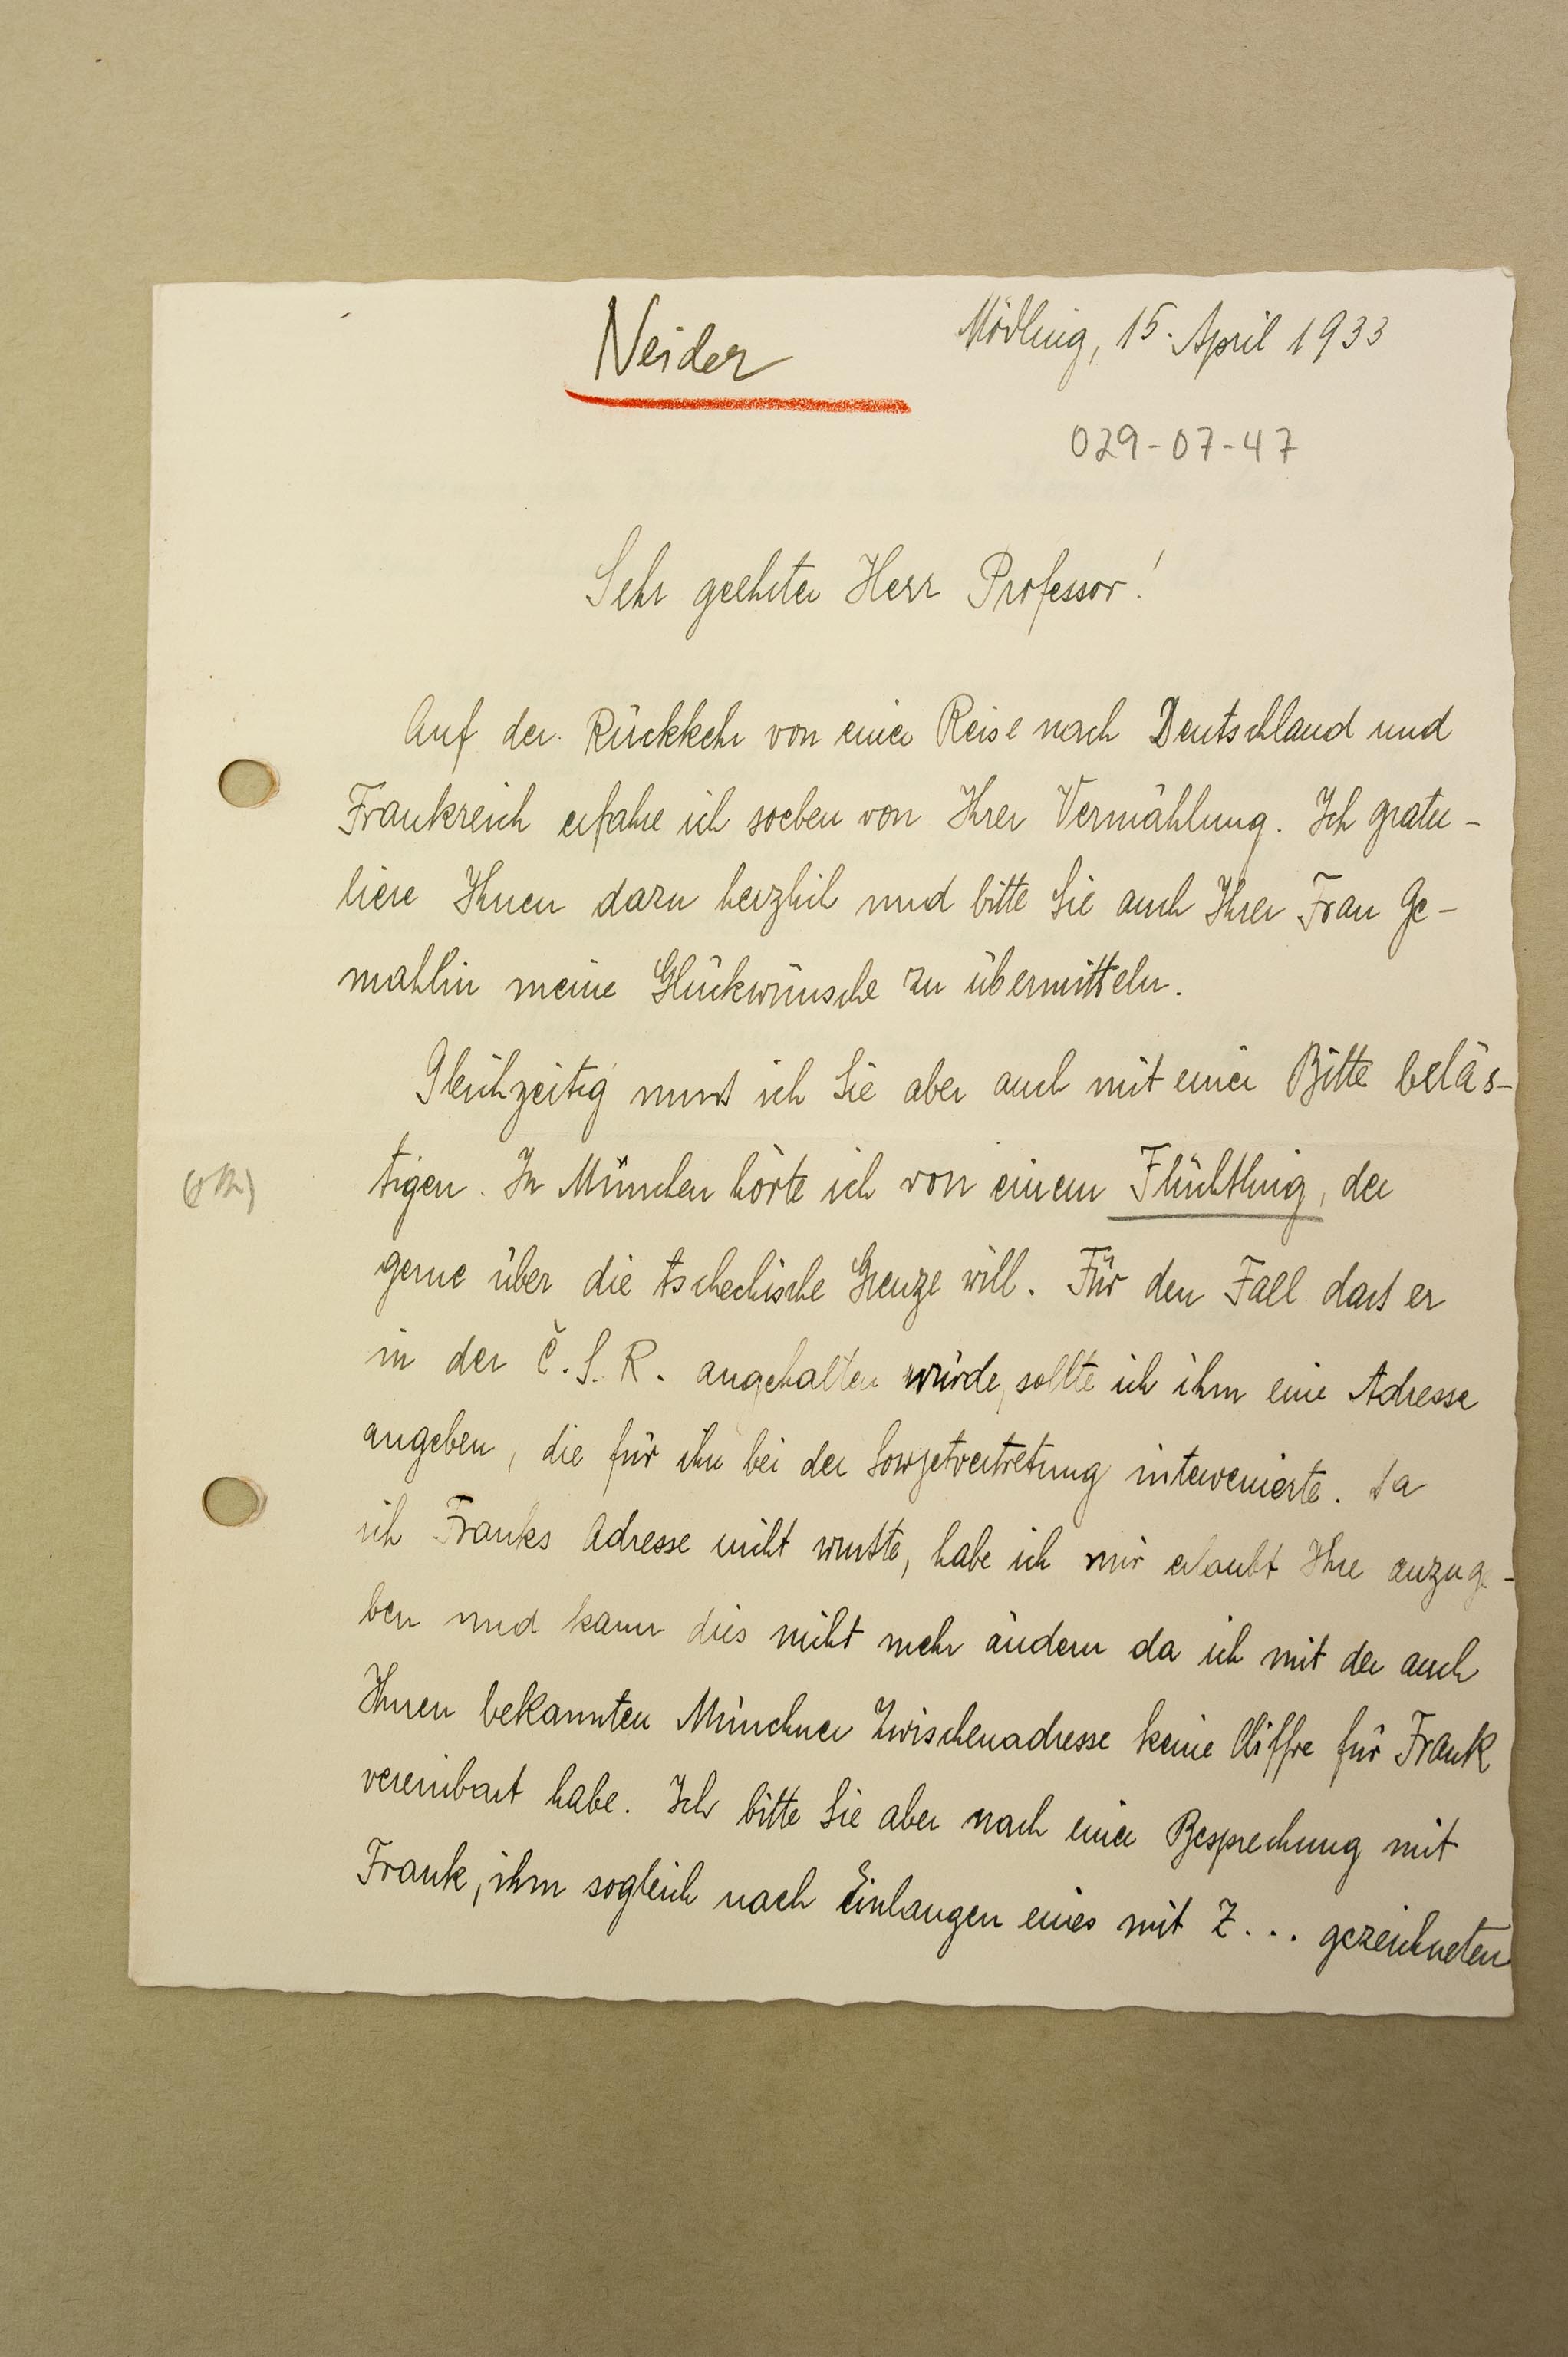 Neider
Mödling, 15. April 1933
029-07-47
Sehr geehrter Herr Professor!
Auf der Rückkehr von einer Reise nach Deutschland und
Frankreich erfahre ich soeben von Ihrer Vermählung. Ich gratu-
liere Ihnen dazu herzlich und bitte Sie auch Ihrer Frau Ge-
mahlin meine Glückwünsche zu übermitteln.
Gleichzeitig muß ich Sie aber auch mit einer Bitte beläs-
tigen. In München hörte ich von einem Flüchtling, der
gerne über die tschechische Grenze will. Für den Fall daß er
in der Č.S.R. angehalten würde, sollte ich ihm eine Adresse
angeben, die für ihn bei der Sowjetvertretung intervenierte. Da
ich Franks Adresse nicht wußte, habe ich mir erlaubt Ihre anzuge-
ben und kann dies nicht mehr ändern da ich mit der auch
Ihnen bekannten Münchner Zwischenadresse keine Chiffre für Frank
vereinbart habe. Ich bitte Sie aber nach einer Besprechung mit
Frank, ihm sogleich nach Einlangen eines mit Z... gezeichneten